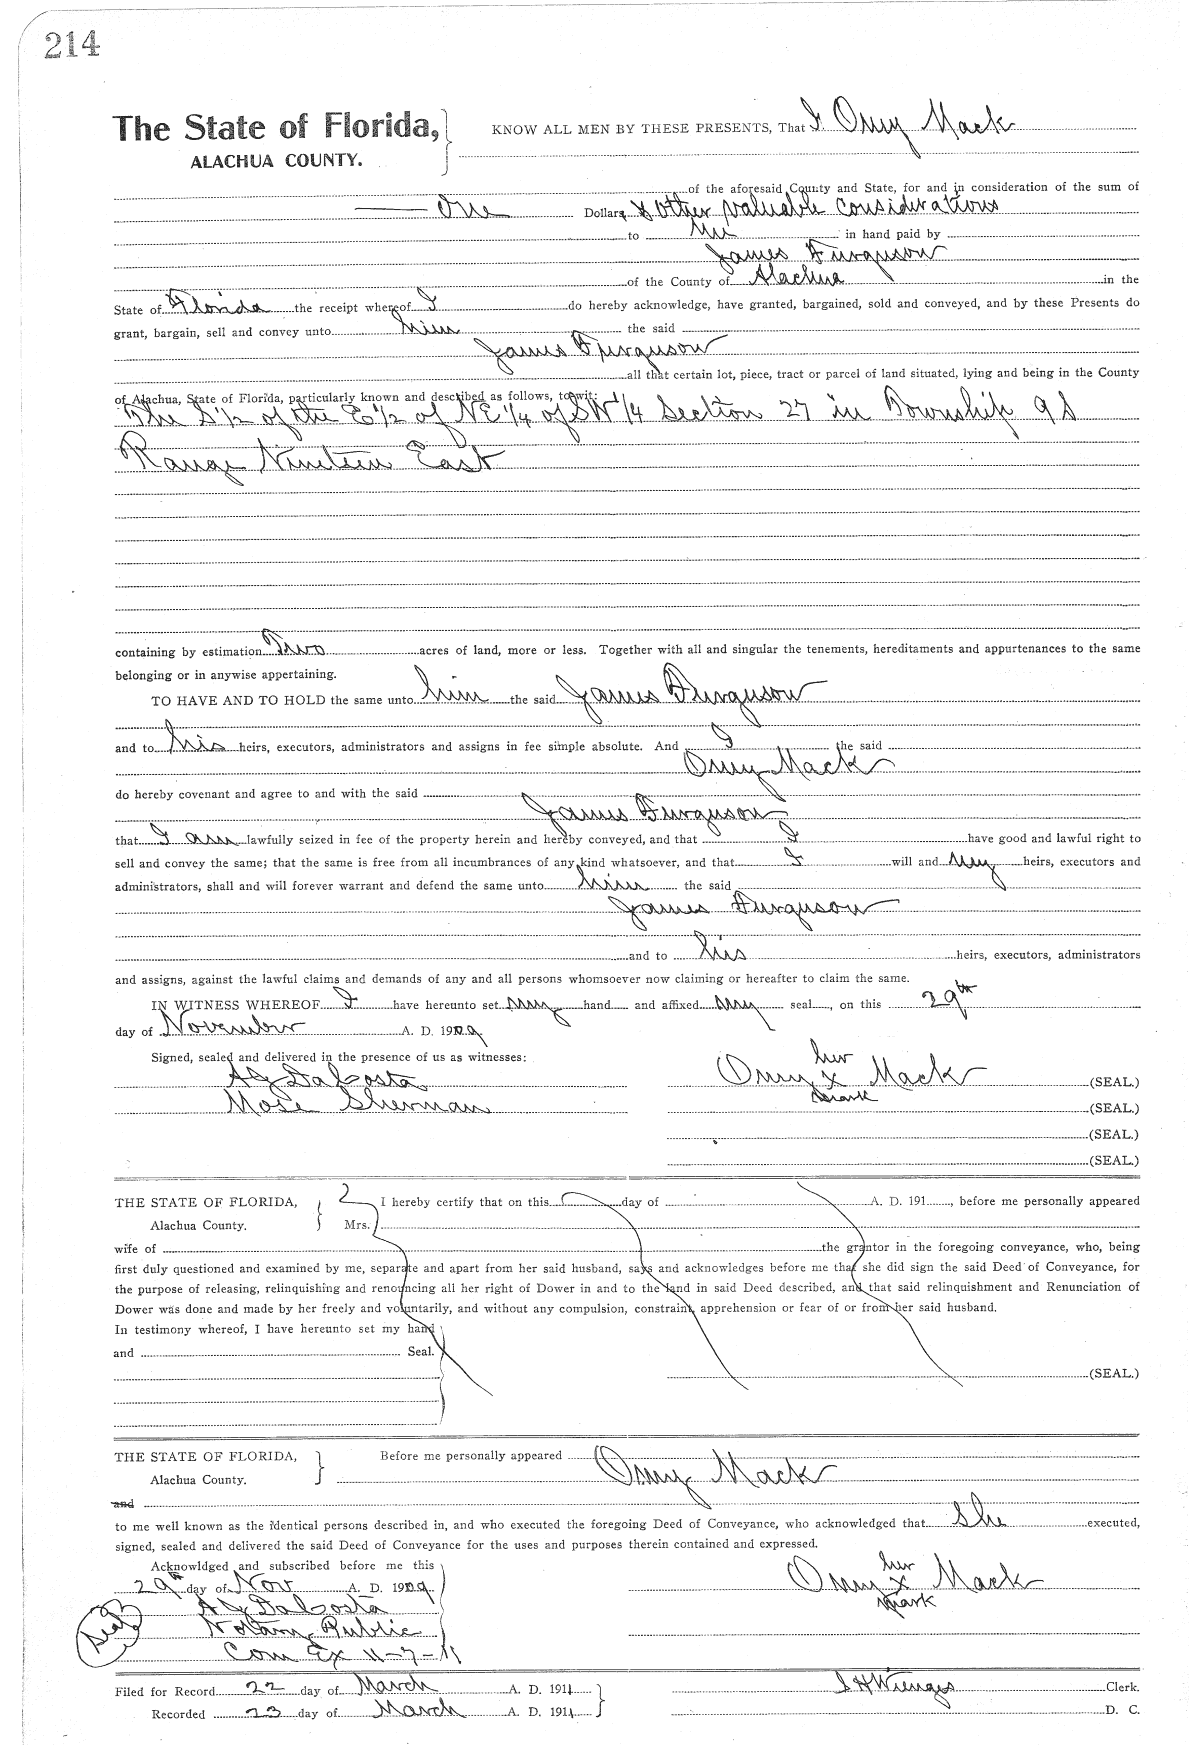 214
The State of Florida,
ALACHUA COUNTY.
KNOW ALL MEN BY THESE PRESENTS, That I Omy Mack
of the aforesaid County and State, for and in consideration of the sum of
One Dollars & Other valuable considerations
to me in hand paid by
James Furguson
of the County of Alachua in the
State of Florida the receipt whereof I do hereby acknowledge, have granted, bargained, sold and conveyed, and by these Presents do
grant, bargain, sell and convey unto him the said
James Furguson
all that certain lot, piece, tract or parcel of land situated, lying and being in the County
of Alachua, State of Florida, particularly known and described as follows, to wit:
The S 1/2 of the E 1/2 of NE 1/4 of SW 1/4 Section 27 in Township 9 S
Range Nineteen East
containing by estimation Two acres of land, more or less. Together with all and singular the tenements, hereditaments and appurtenances to the same
belonging or in anywise appertaining.
TO HAVE AND TO HOLD the same unto him the said James Furguson
and to his heirs, executors, administrators and assigns in fee simple absolute. And I the said
Omy Mack
do hereby covenant and agree to and with the said
James Furguson
that I am lawfully seized in fee of the property herein and hereby conveyed, and that I have good and lawful right to
sell and convey the same; that the same is free from all incumbrances of any kind whatsoever, and that I will and my heirs, executors and
administrators, shall and will forever warrant and defend the same unto him the said
James Furguson
and to his heirs, executors, administrators
and assigns, against the lawful claims and demands of any and all persons whomsoever now claiming or hereafter to claim the same.
IN WITNESS WHEREOF I have hereunto set my hand and affixed my seal, on this 29th
day of November A. D. 1909
Signed, sealed and delivered in the presence of us as witnesses:
her
A J DaCosta Omy x Mack (SEAL.)
mark
Mose Sherman (SEAL.)
(SEAL.)
(SEAL.)
THE STATE OF FLORIDA,
Alachua County.
I hereby certify that on this day of A. D. 191 , before me personally appeared
Mrs.
wife of the grantor in the foregoing conveyance, who, being
first duly questioned and examined by me, separate and apart from her said husband, says and acknowledges before me that she did sign the said Deed of Conveyance, for
the purpose of releasing, relinquishing and renouncing all her right of Dower in and to the land in said Deed described, and that said relinquishment and Renunciation of
Dower was done and made by her freely and voluntarily, and without any compulsion, constraint, apprehension or fear of or from her said husband.
In testimony whereof, I have hereunto set my hand
and Seal.
(SEAL.)
THE STATE OF FLORIDA,
Alachua County.
Before me personally appeared Omy Mack
and
to me well known as the identical persons described in, and who executed the foregoing Deed of Conveyance, who acknowledged that She executed,
signed, sealed and delivered the said Deed of Conveyance for the uses and purposes therein contained and expressed.
Acknowldged and subscribed before me this
29th day of Nov A. D. 1909
her
Omy x Mack
mark
A J DaCosta
Seal
Notary Public
Com Ex 11-7-11
Filed for Record 22 day of March A. D. 1911
S H Wienges Clerk.
Recorded 23 day of March A. D. 1911
D. C.